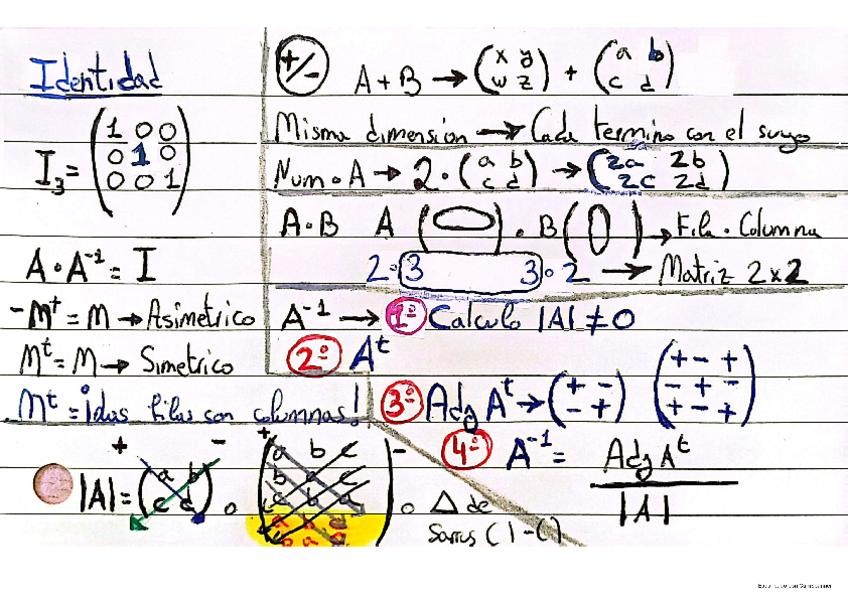 Identidad
I₃ = (1 0 0
0 1 0
0 0 1)
A · A⁻¹ = I
-Mᵗ = M → Asimetrico
Mᵗ = M → Simetrico
Mᵗ = ¡das filas son columnas!
+/-
A + B → (x y
w z) + (a b
c d)
Misma dimensión → Cada termino con el suyo
Num · A → 2 · (a b
c d) → (2a 2b
2c 2d)
A · B A ( ) · B ( ) → Fila · Columna
2 · 3 3 · 2 → Matriz 2x2
A⁻¹ → 1º Calculo |A| ≠ 0
2º Aᵗ
3º Adj Aᵗ → (+ -
- +) (+ - +
- + -
+ - +)
4º A⁻¹ = Adj Aᵗ
|A|
+ -
|A| = (a b
c d) o
+ -
a b c
o Δ de
Sarrus